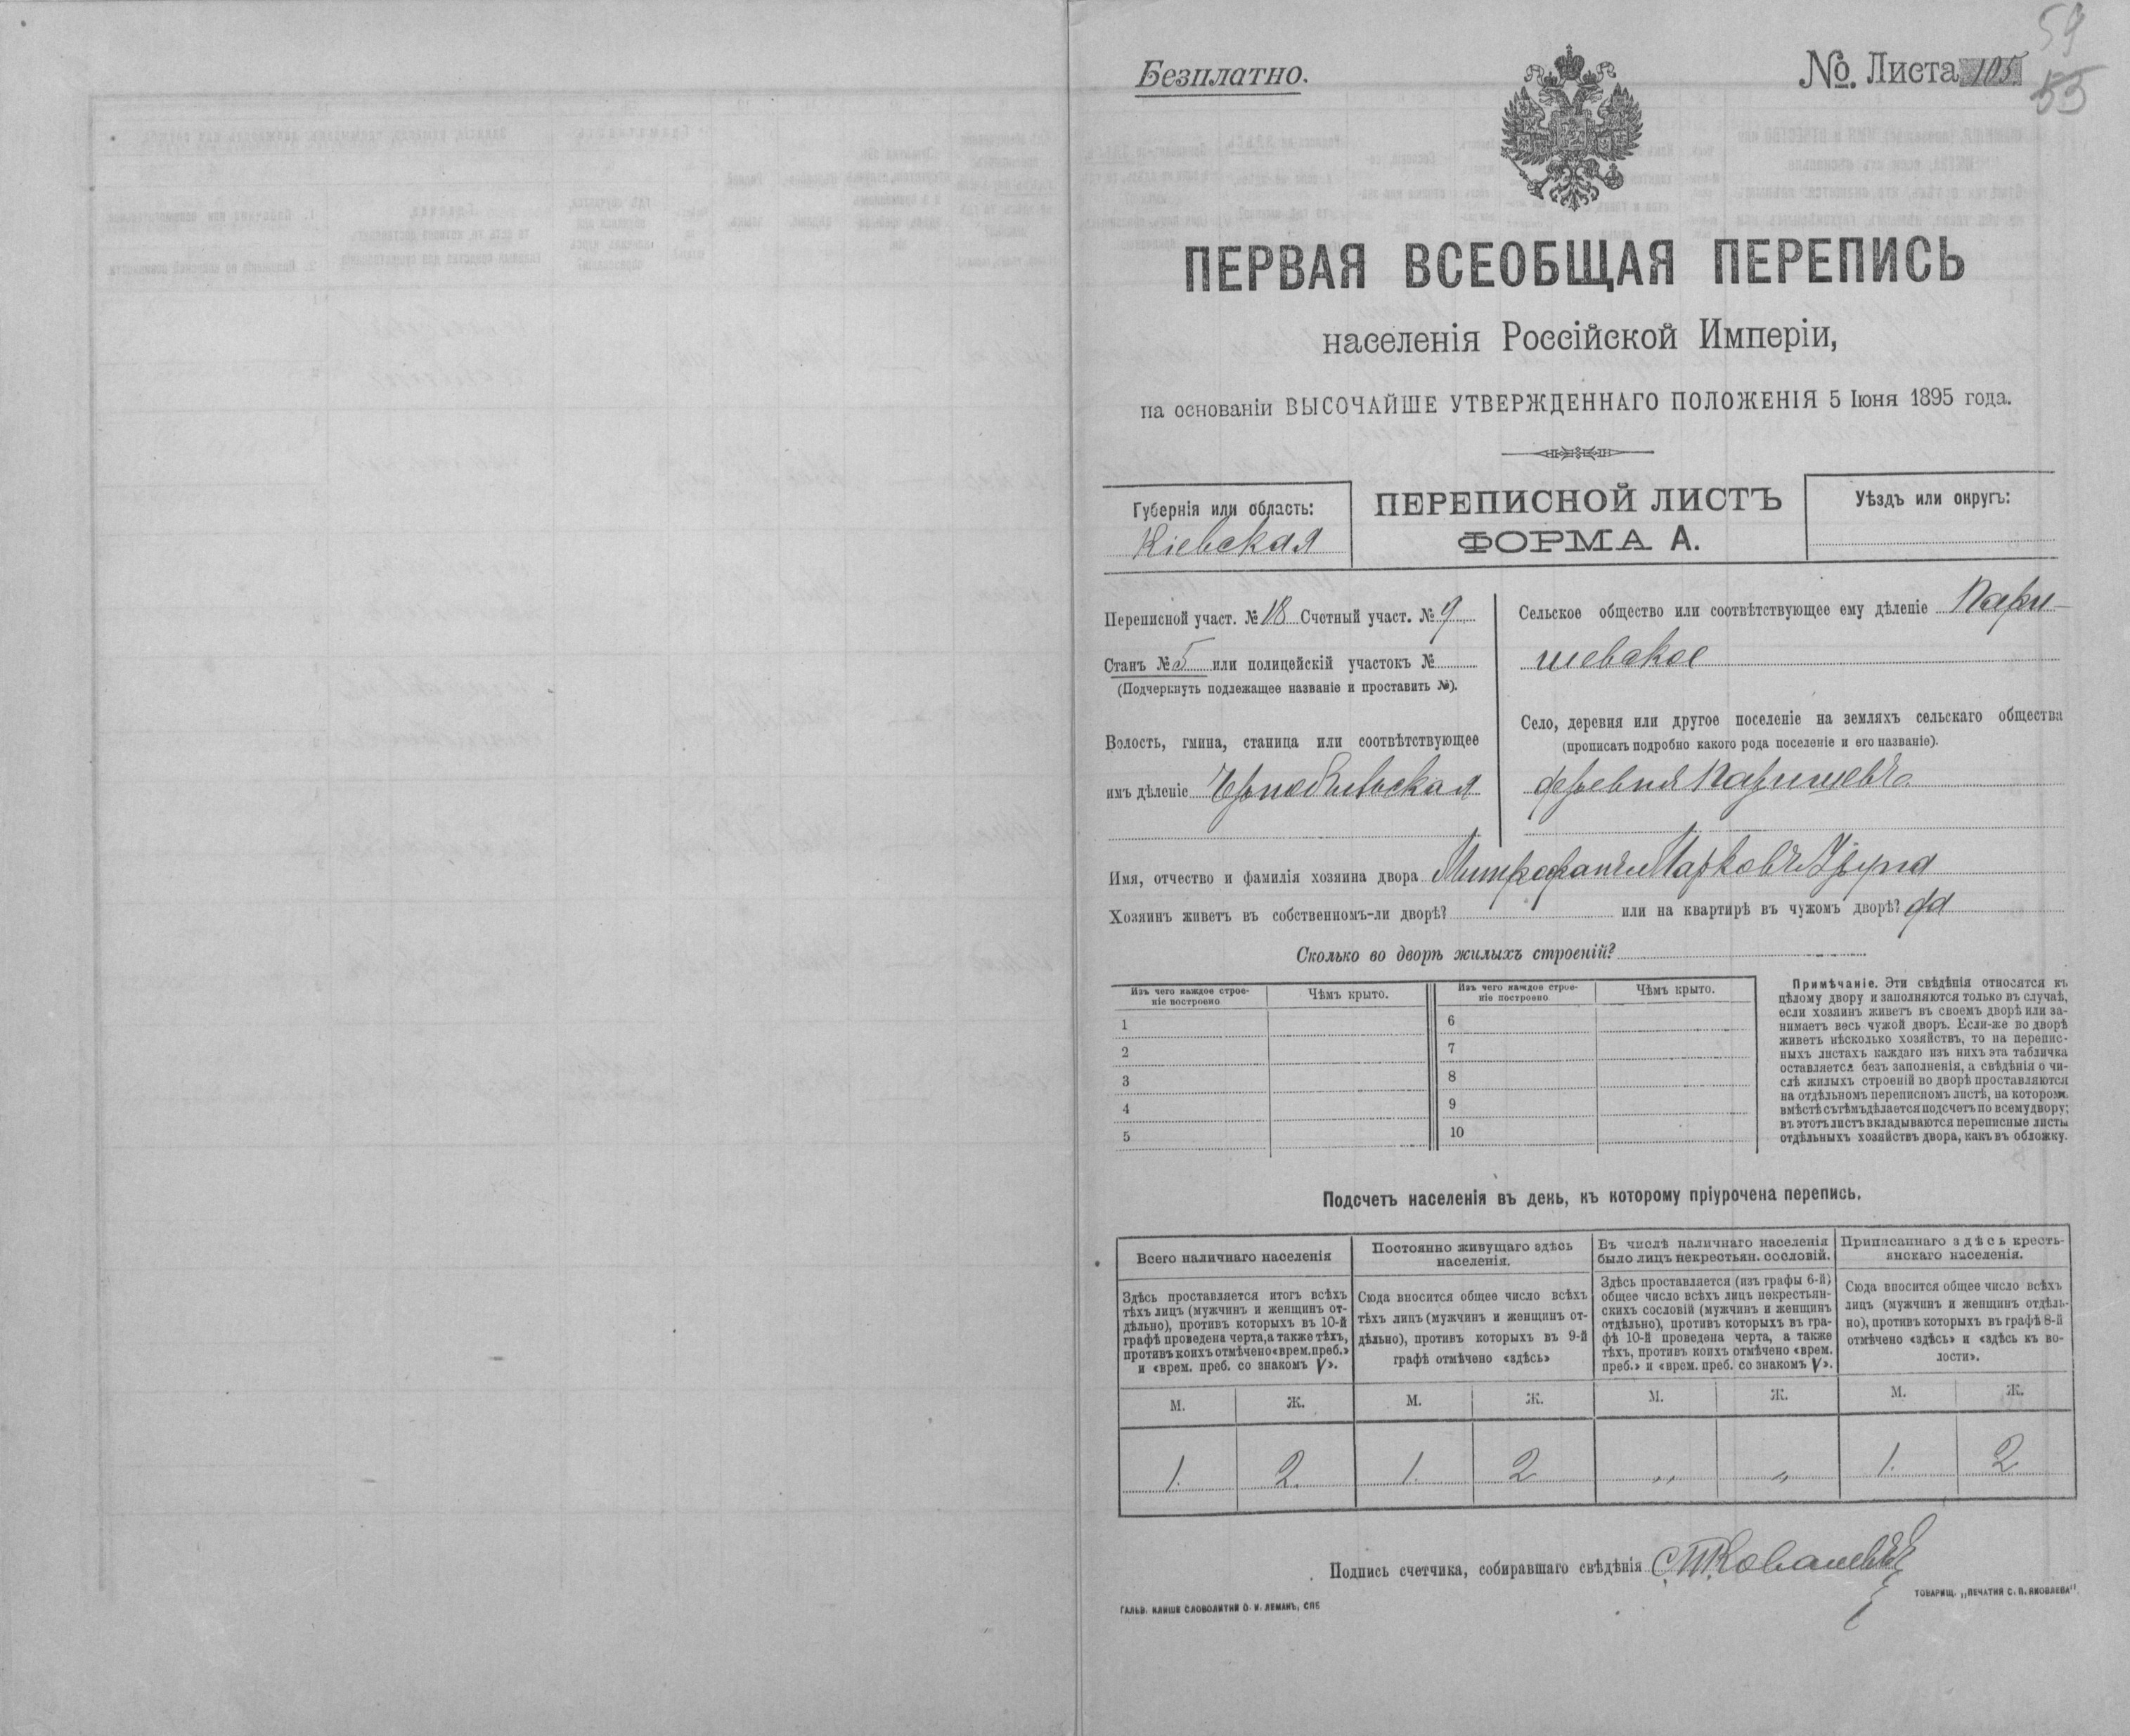 59
Безплатно.
№ Листа 105
55
ПЕРВАЯ ВСЕОБЩАЯ ПЕРЕПИСЬ
населенія Россійской Имперіи,
на основаніи ВЫСОЧАЙШЕ УТВЕРЖДЕННАГО ПОЛОЖЕНІЯ 5 Іюня 1895 года.
Губернія или область:
Кіевская
ПЕРЕПИСНОЙ ЛИСТЪ
ФОРМА А.
Уѣздъ или округъ:
Переписной участ. № 18 Счетный участ. № 9
Станъ № 5 или полицейскій участокъ №
(Подчеркнуть подлежащее названіе и проставить №).
Волость, гмина, станица или соотвѣтствующее
имъ дѣленіе Чернобыльская
Сельское общество или соотвѣтствующее ему дѣленіе Пари-
шевское
Село, деревня или другое поселеніе на земляхъ сельскаго общества
(прописать подробно какого рода поселеніе и его названіе).
деревня Паришевъ
Имя, отчество и фамилія хозяина двора Митрофанъ Марковъ
Хозяинъ живетъ въ собственномъ-ли дворѣ? или на квартирѣ въ чужомъ дворѣ? да
Сколько во дворѣ жилыхъ строеній?
Изъ чего каждое строе-
ніе построено
Чѣмъ крыто.
Изъ чего каждое строе-
ніе построено
Чѣмъ крыто.
1 6
2 7
3 8
4 9
5 10
Примѣчаніе. Эти свѣдѣнія относятся къ
цѣлому двору и заполняются только въ случаѣ,
если хозяинъ живетъ въ своемъ дворѣ или за-
нимаетъ весь чужой дворъ. Если-же во дворѣ
живетъ нѣсколько хозяйствъ, то на перепис-
ныхъ листахъ каждаго изъ нихъ эта табличка
оставляется безъ заполненія, а свѣдѣнія о чи-
слѣ жилыхъ строеній во дворѣ проставляются
на отдѣльномъ переписномъ листѣ, на которомъ
вмѣстѣ съ тѣмъ дѣлается подсчетъ по всему двору;
въ этотъ листъ вкладываются переписные листы
отдѣльныхъ хозяйствъ двора, какъ въ обложку.
Подсчетъ населенія въ день, къ которому пріурочена перепись.
Всего наличнаго населенія
Здѣсь проставляется итогъ всѣхъ
тѣхъ лицъ (мужчинъ и женщинъ от-
дѣльно), противъ которыхъ въ 10-й
графѣ проведена черта, а также тѣхъ,
противъ коихъ отмѣчено «врем. преб.»
и «врем. преб. со знакомъ V».
Постоянно живущаго здѣсь
населенія.
Сюда вносится общее число всѣхъ
тѣхъ лицъ (мужчинъ и женщинъ от-
дѣльно), противъ которыхъ въ 9-й
графѣ отмѣчено «здѣсь»
Въ числѣ наличнаго населенія
было лицъ некрестьян. сословій.
Здѣсь проставляется (изъ графы 6-й)
общее число всѣхъ лицъ некрестьян-
скихъ сословій (мужчинъ и женщинъ
отдѣльно), противъ которыхъ въ гра-
фѣ 10-й проведена черта, а также
тѣхъ, противъ коихъ отмѣчено «врем.
преб.» и «врем. преб. со знакомъ V».
Приписаннаго здѣсь кресть-
янскаго населенія.
Сюда вносится общее число всѣхъ
лицъ (мужчинъ и женщинъ отдѣль-
но), противъ которыхъ въ графѣ 8-й
отмѣчено «здѣсь» и «здѣсь къ во-
лости».
М. Ж. М. Ж. М. Ж. М. Ж.
1. 2. 1. 2 „ „ 1. 2
Подпись счетчика, собиравшаго свѣдѣнія
ГАЛЬВ. КЛИШЕ СЛОВОЛИТНИ О. И. ЛЕМАНЪ, СПБ
ТОВАРИЩ. „ПЕЧАТНЯ С. П. ЯКОВЛЕВА“